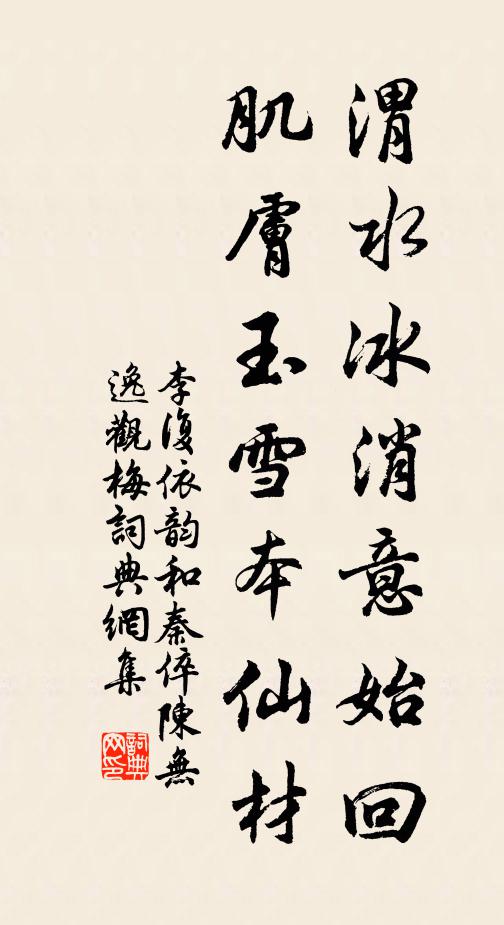 渭水冰消意始回
肌膚玉雪本仙材
李復依韵和秦倅陳無
逸觀梅詞典網集
詞典
网印